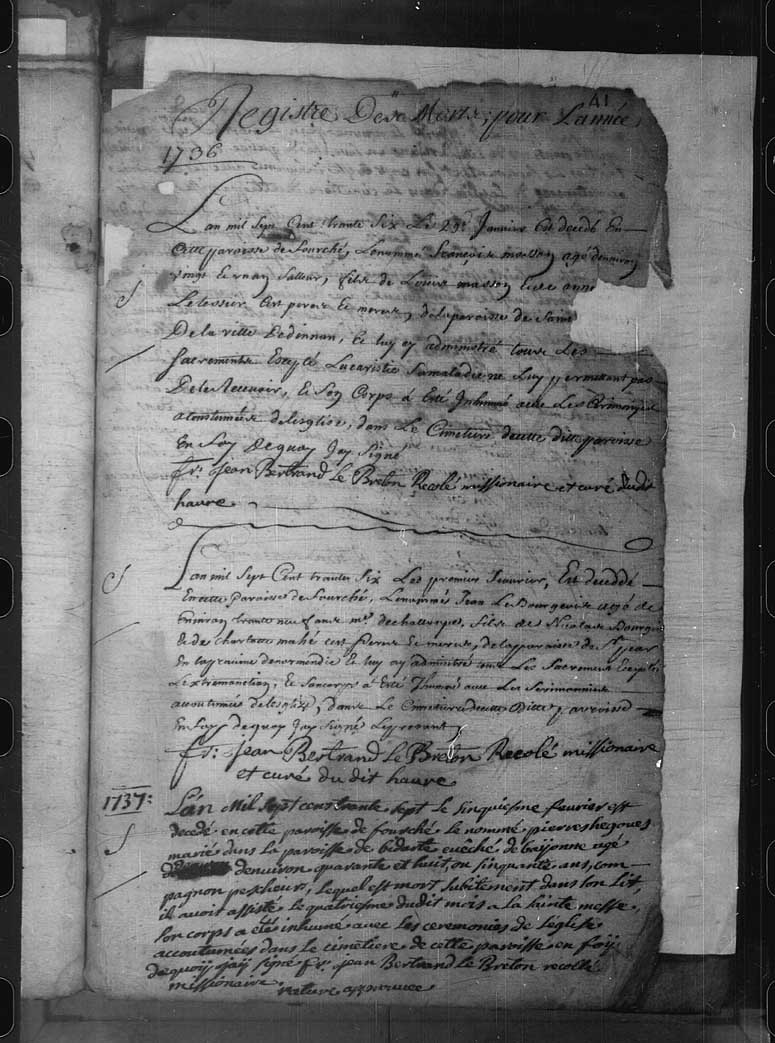 A1
Registre Dese Morts, pour L'année
1736
Lan mil Sept Cent trante Six Le 29e Janvier Est decedé En
Cette paroisse de fourché, Lenommé françois masson agé denviron
vingt Et un an Salleur, filse de Louis masson Et de anne
Letessier Ces peres Et meres, de la paroisse de Saint
De la ville Dedinnan, Et luy ay administré tous Les
Sacrements Excepté Lucaristie Samaladie ne Luy permettant pas
De le Recevoir, Et Son Corps á Esté Inhumé avec Les Cérémonyes
acoutumées de leglise, dans Le Cimetiere decette ditte paroisse
En foy Dequoy Jay Signé
fr. Jean Bertrand Le Breton Recolé missionaire et curé dudit
havre
Lan mil Sept Cent trante Six Les premier feavrier, Est deceddé
Encette paroisse de fourché, Lenommé Jean Le Bourgeois agé de
Environ trante neuf ans me. de chalouppe, filse de Nicolas Bourgois
& de charlotte mahé ces Peres Et meres, de la paroisse de St. jean
En Normendie Et luy ay administré Les Sacrement Excepté
Lextremonction, Et Son corps á Esté Ihumé avec Les Serimonnies
acoutumées de leglise, dans Le Cimetiere decette Ditte parroisse
En foy de quoy Jay Signé Le present
fr: jean Bertrand Le Breton Recolé missionaire
et curé du dit havre
1737:
L'an Mil Sept cens trante Sept Le Sinquiesme feuvrier est
decedé en cette paroisse de fourché le nommé pierre hegoues
marié dans La paroisse de bidarte evêché de baijonne agé
denviron quarante et huit, ou Sinquante ans, com-
pagnon pescheur, Lequel est mort Subitement dans Son Lit,
il avoit assisté le quatriesme dudit mois a la Sainte messe,
Son corps a etés inhumé avec Les ceremonies de L'eglise
accoutumées dans le cimetiere de cette paroisse en foij
dequoij j'aij signé fr. jean Bertrand Le Breton recollé
missionaire. rature approuvee